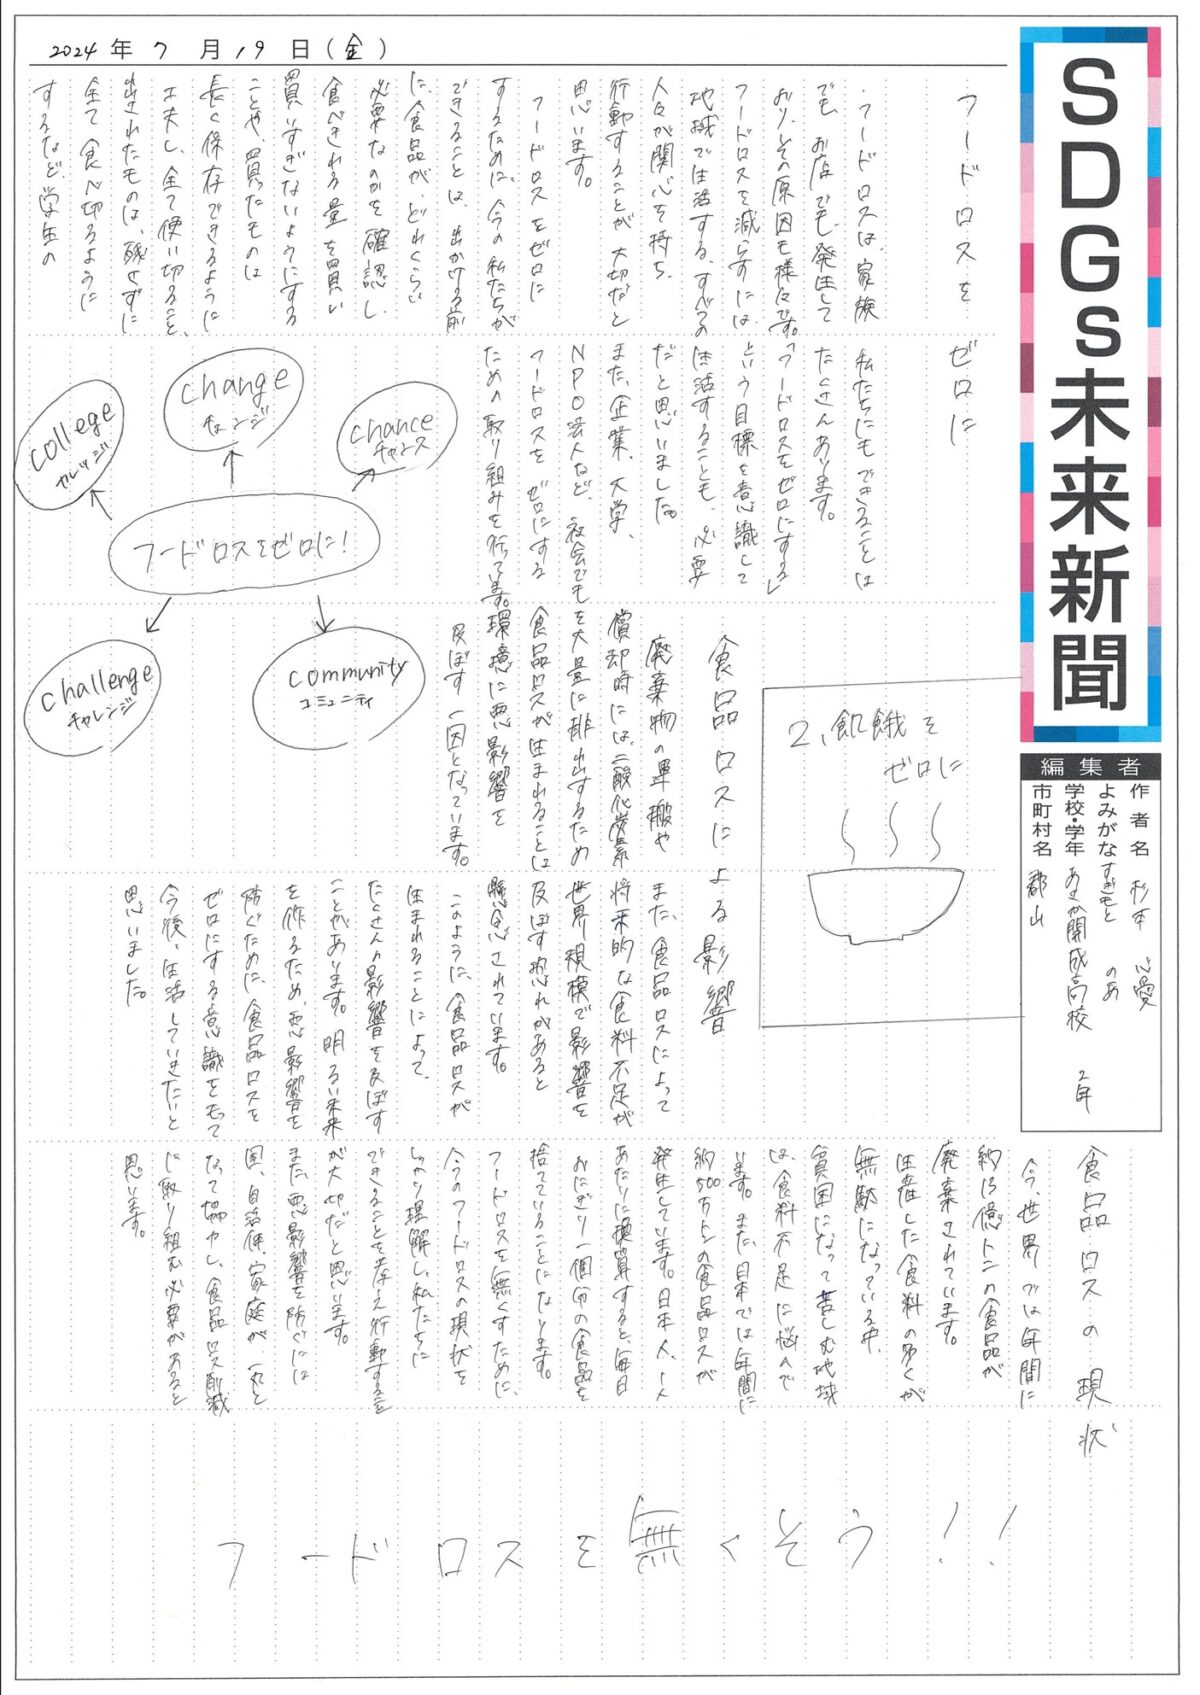 2024年7月19日(金)
SDGs未来新聞
編集者
作者名 杉本 心愛
よみがな すぎもと のあ
学校・学年 あさか開成高校 2年
市町村名 郡山
フードロスを
ゼロに
・フードロスは、家族
でも お店でも、発生して
おり、その原因も様々です。
フードロスを減らすには、
地域で生活する、すべての
人々が関心を持ち、
行動することが大切だと
思います。
フードロスをゼロに
するために、今の私たちが
できることは、出かける前
に、食品が、どれくらい
必要なのかを確認し、
食べきれる量を買い
買いすぎないようにする
ことや、買ったものは
長く保存できるように
工夫し、全て使い切ること、
出されたものは、残せずに
全て食べ切るように
するなど、学生の
私たちにもできることは
たくさんあります。
「フードロスをゼロにする」
という目標を意識して
生活することも、必要
だと思いました。
また、企業、大学、
NPO法人など、社会でも
フードロスをゼロにする
ための取り組みを行っています。
college
カレッジ
change
チェンジ
chance
チャンス
フードロスをゼロに!
challenge
チャレンジ
community
コミュニティ
2、飢餓を
ゼロに
食品ロスによる影響
廃棄物の運搬や
償却時には、二酸化炭素
を大量に排出するため
食品ロスが生まれることは
環境に悪影響を
及ぼす一因となっています。
また、食品ロスによって
将来的な食料不足が
世界規模で影響を
及ぼす恐れがあると
懸念されています。
このように、食品ロスが
生まれることによって、
たくさんの影響を及ぼす
ことがあります。明るい未来
を作るため、悪影響を
防ぐために、食品ロスを
ゼロにする意識をもって
今後、生活していきたいと
思いました。
食品ロスの現状
今、世界では年間に
約13億トンの食品が
廃棄されています。
生産した食料の多くが
無駄になっている中、
貧困になって苦しむ地域
は、食料不足に悩んで
います。また、日本では年間に
約500万トンの食品ロスが
発生しています。日本人、一人
あたりに換算すると、毎日
おにぎり一個分の食品を
捨てていることになります。
フードロスを無くすために、
今のフードロスの現状を
しっかり理解し、私たちに
できることを考え行動すること
が大切だと思います。
また、悪影響を防ぐには
国、自治体、家庭が一丸と
なって協力し、食品ロス削減
に取り組む必要があると
思います。
フードロスを無くそう!!